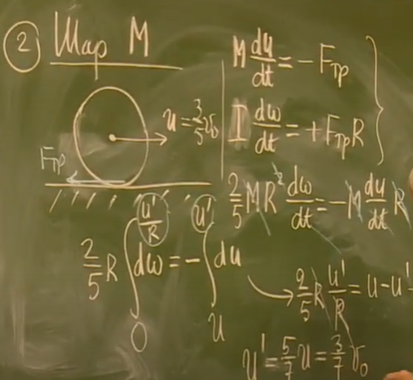 ② Шар M
M du/dt = -Fтр
I dω/dt = +Fтр R
u = 3/5 v₀
Fтр
2/5 MR² dω/dt = -M du/dt R
2/5 R ∫₀^(u'/R) dω = - ∫ᵤ^(u') du
2/5 R u'/R = u - u'
u' = 5/7 u = 3/7 v₀